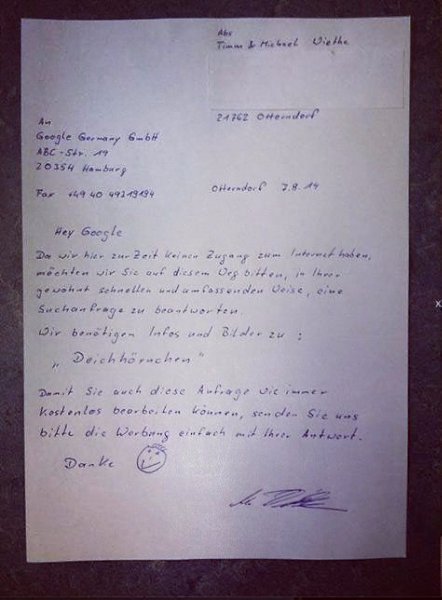 Abs
Timm & Michael Wiethe
21762 Otterndorf
An
Google Germany GmbH
ABC-Str. 19
20354 Hamburg
Fax +49 40 49219194
Otterndorf 7.8.14
Hey Google
Da wir hier zur Zeit keinen Zugang zum Internet haben,
möchten wir Sie auf diesem Weg bitten, in Ihrer
gewohnt schnellen und umfassenden Weise, eine
Suchanfrage zu beantworten.
Wir benötigen Infos und Bilder zu :
„ Deichhörnchen "
Damit Sie auch diese Anfrage wie immer
kostenlos bearbeiten können, senden Sie uns
bitte die Werbung einfach mit Ihrer Antwort.
Danke
x